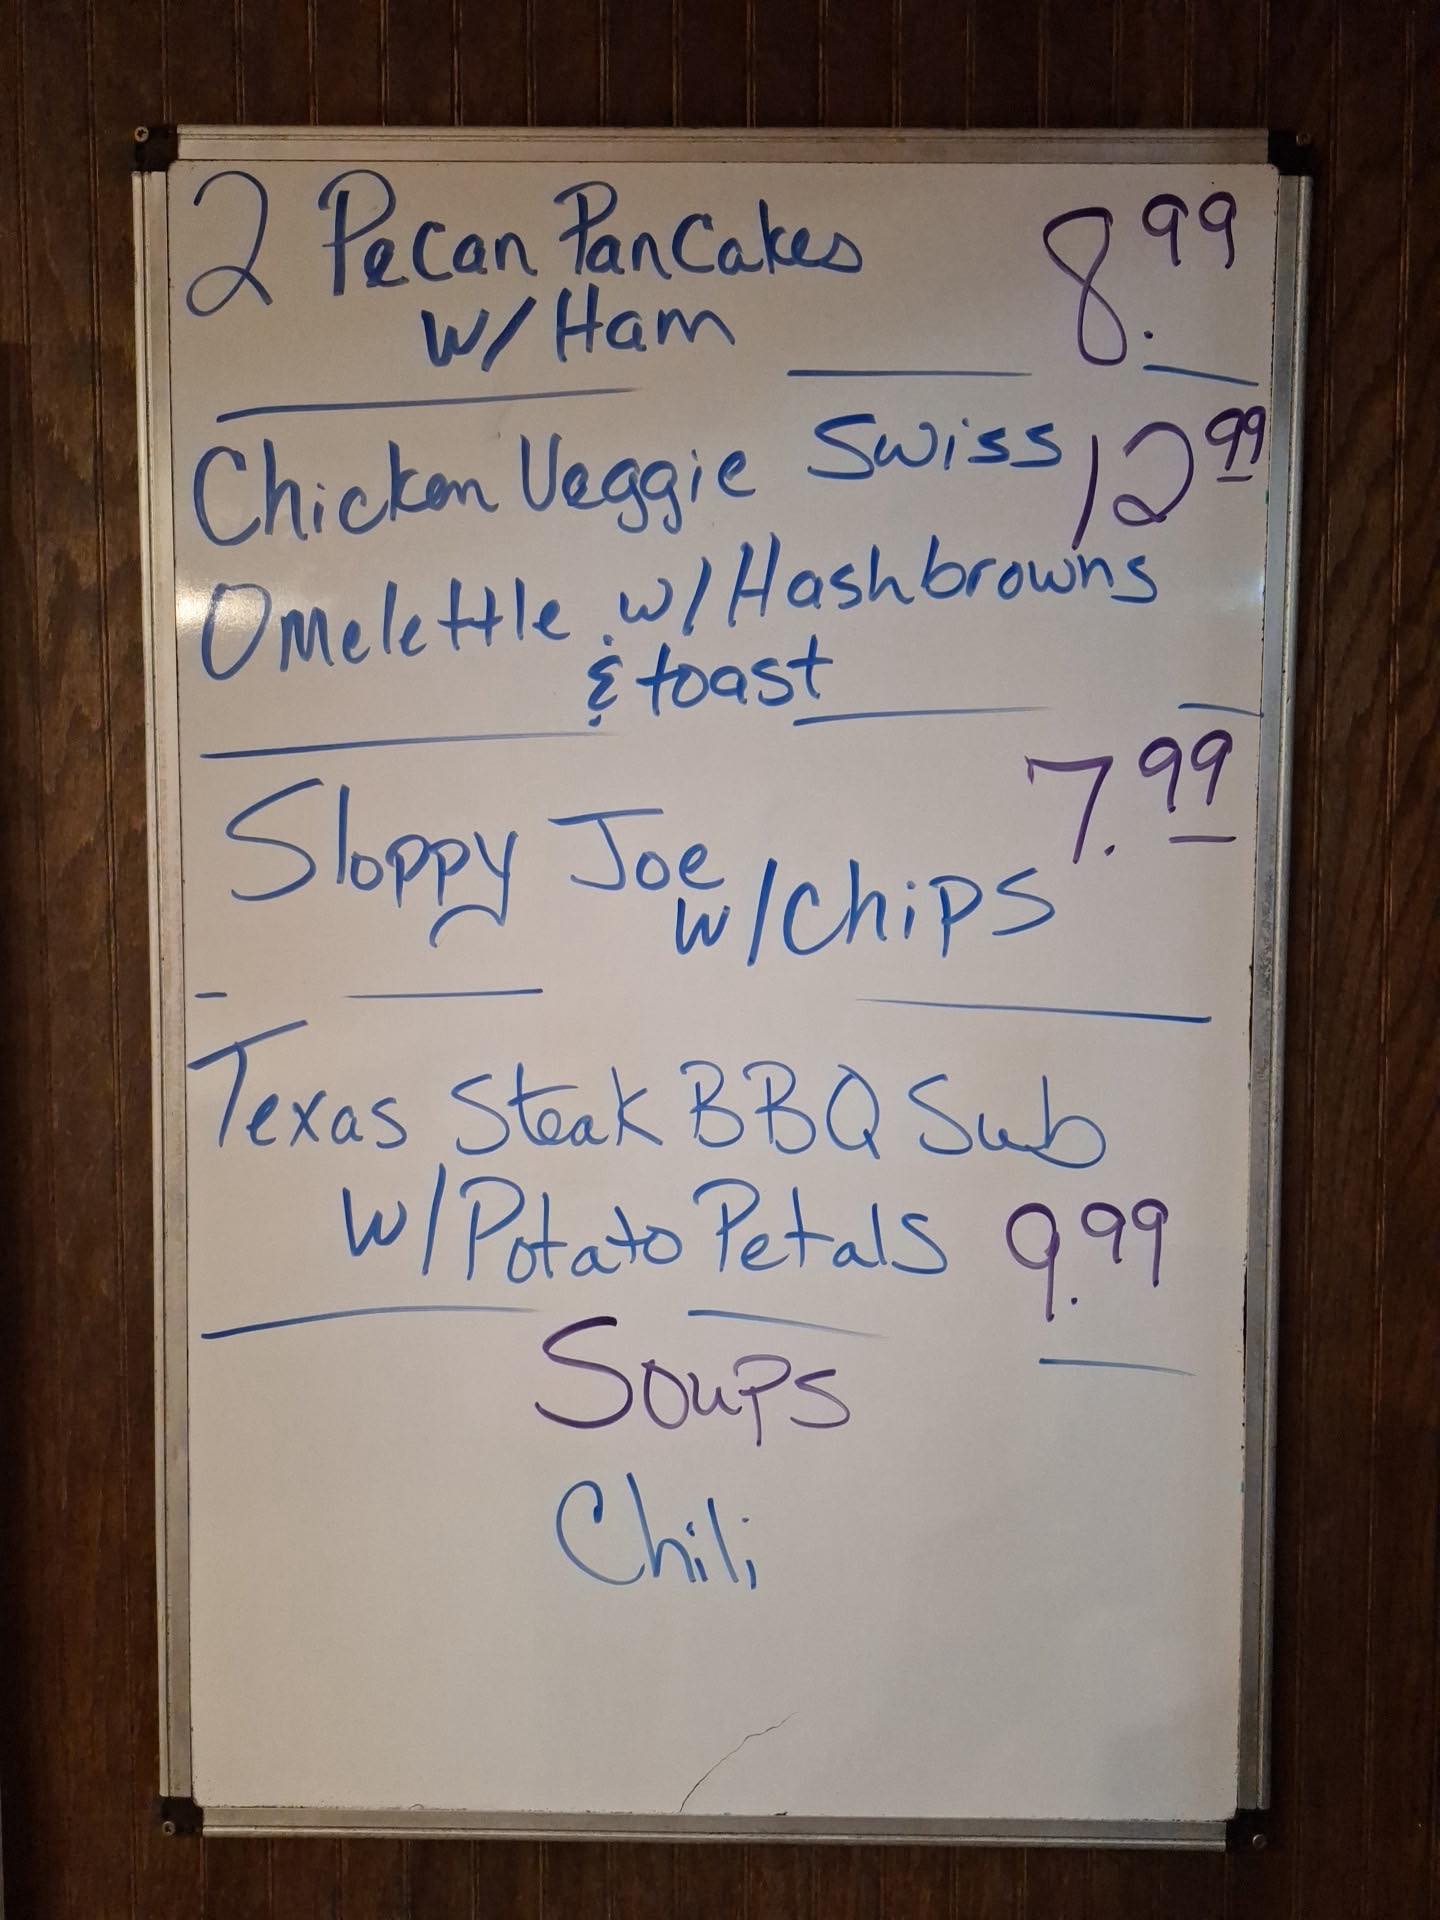 2 Pecan Pancakes 8.99
w/Ham
Chicken Veggie Swiss 12 99
Omelettle w/Hashbrowns
& toast
7.99
Sloppy Joe
w/chips
Texas Steak BBQ Sub
w/Potato Petals 9.99
Soups
Chili